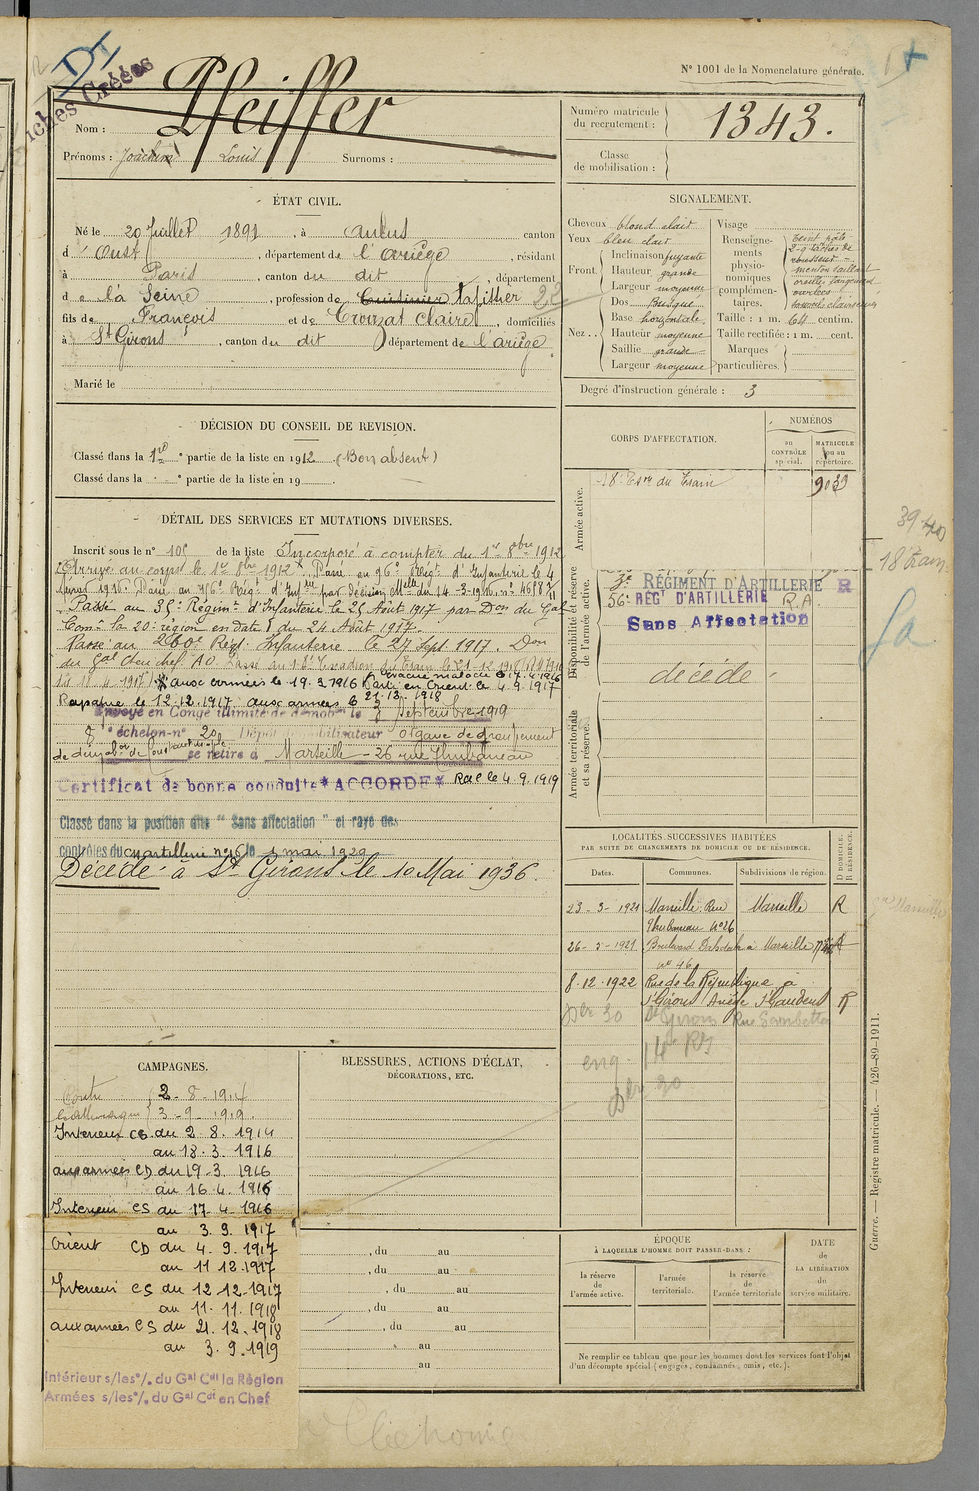 N° 1001 de la Nomenclature générale.
Fiches Créées
Nom : Pfeiffer
Prénoms : Joachim Louis Surnoms :
Numéro matricule du recrutement : 1343.
Classe de mobilisation :
ÉTAT CIVIL.
Né le 20 Juillet 1891, à Aulus canton
d'Oust, département de l'Ariège, résidant
à Paris, canton du dit, département
de la Seine, profession de Cuisinier tapissier
fils de François et de Crouzat Claire, domiciliés
à St Girons, canton du dit département de l'Ariège
Marié le
SIGNALEMENT.
Cheveux blond clair
Yeux bleu clair
Front Inclinaison fuyante
Hauteur grande
Largeur moyenne
Nez Dos Busqué
Base horizontale
Hauteur moyenne
Saillie grande
Largeur moyenne
Visage
Renseignements physionomiques complémentaires.
teint pâle
taches de rousseur
menton saillant
oreille largement ouvertes
Taille : 1 m. 64 centim.
Taille rectifiée : 1 m. cent.
Marques particulières.
Degré d'instruction générale : 3
DÉCISION DU CONSEIL DE REVISION.
Classé dans la 1re partie de la liste en 1912 (Bon absent)
Classé dans la ° partie de la liste en 19
CORPS D'AFFECTATION.
NUMÉROS
au CONTRÔLE spécial.
MATRICULE ou au répertoire.
Armée active.
18e Esc du Train 9039
Disponibilité et réserve de l'armée active.
RÉGIMENT D'ARTILLERIE R
56e REG' D'ARTILLERIE R.A.
Sans Affectation
décédé
Armée territoriale et sa réserve.
39 40
18 Train
DÉTAIL DES SERVICES ET MUTATIONS DIVERSES.
Inscrit sous le n° 105 de la liste Incorporé à compter du 1er 8bre 1912
Arrivé au corps le 1er 8bre 1912. Passé au 96e Régt d'Infanterie le 4
Passé au 35e Régimt d'Infanterie le 25 Août 1917 par Don du Gal
Comt la 20e région en date du 24 Août 1917.
Passé au 260e Régt Infanterie le 27 Sept. 1917. Don
du Gal Cdt en chef AO Passé au 18e Escadron du Train le 21-12-1918
aux armées le 19.3.1916 évacué malade le 17.4.1916
Parti en Orient le 4.9.1917
Rapatrié le 12.12.1917 aux armées le 21.12.1918
Envoyé en Congé illimité de démob. le 3 Septembre 1919
8e échelon n° 20, Dépôt démobilisateur organe de groupement
se retire à Marseille 26 rue Thubaneau
Certificat de bonne conduite "ACCORDÉ" Rac le 4.9.1919
Classé dans la position dite "Sans affectation" et rayé des
contrôles du d'artillerie n° 16 le 1 mai 1929
Décédé à St Girons le 10 Mai 1936.
LOCALITÉS SUCCESSIVES HABITÉES
PAR SUITE DE CHANGEMENTS DE DOMICILE OU DE RÉSIDENCE.
Dates. Communes. Subdivisions de région. D DOMICILE. R RÉSIDENCE.
23-3-1921 Marseille Rue Thubaneau N°26 Marseille R
26-5-1921 Boulevard à Marseille
n° 46
8.12.1922 Rue de la République à
St Girons Ariège St Gaudens R
St Girons Rue Gambetta
CAMPAGNES.
Contre 2-8-1914
l'Allemagne 3-9-1919.
Intérieur CS du 2 8. 1914
au 18. 3. 1916
aux armées CD du 19-3. 1916
au 16 4. 1916
Intérieur CS du 17-4. 1916
au 3. 9. 1917
Orient CD du 4. 9. 1917
au 11 12.1917
Intérieur CS du 12-12-1917
au 11. 11. 1918
aux armées CS du 21. 12. 1918
au 3. 9. 1919
Intérieur s/les °/. du Gal Cdt la Région
Armées s/les °/. du Gal Cdt en Chef
BLESSURES, ACTIONS D'ÉCLAT,
DÉCORATIONS, ETC.
, du au
, du au
, du au
, du au
, du au
au
au
ÉPOQUE
À LAQUELLE L'HOMME DOIT PASSER DANS :
la réserve de l'armée active.
l'armée territoriale.
la réserve de l'armée territoriale
DATE de LA LIBÉRATION du service militaire.
Ne remplir ce tableau que pour les hommes dont les services font l'objet
d'un décompte spécial (engagés, condamnés, omis, etc.).
Guerre. — Registre matricule. — 426-89-1911.